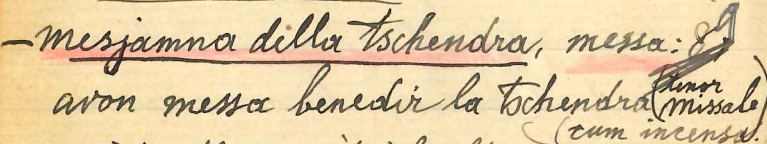 – mesjamna della tschendra, messa: 8
avon messa benedir la tschendra (tenor Missale)
(cum incensu.